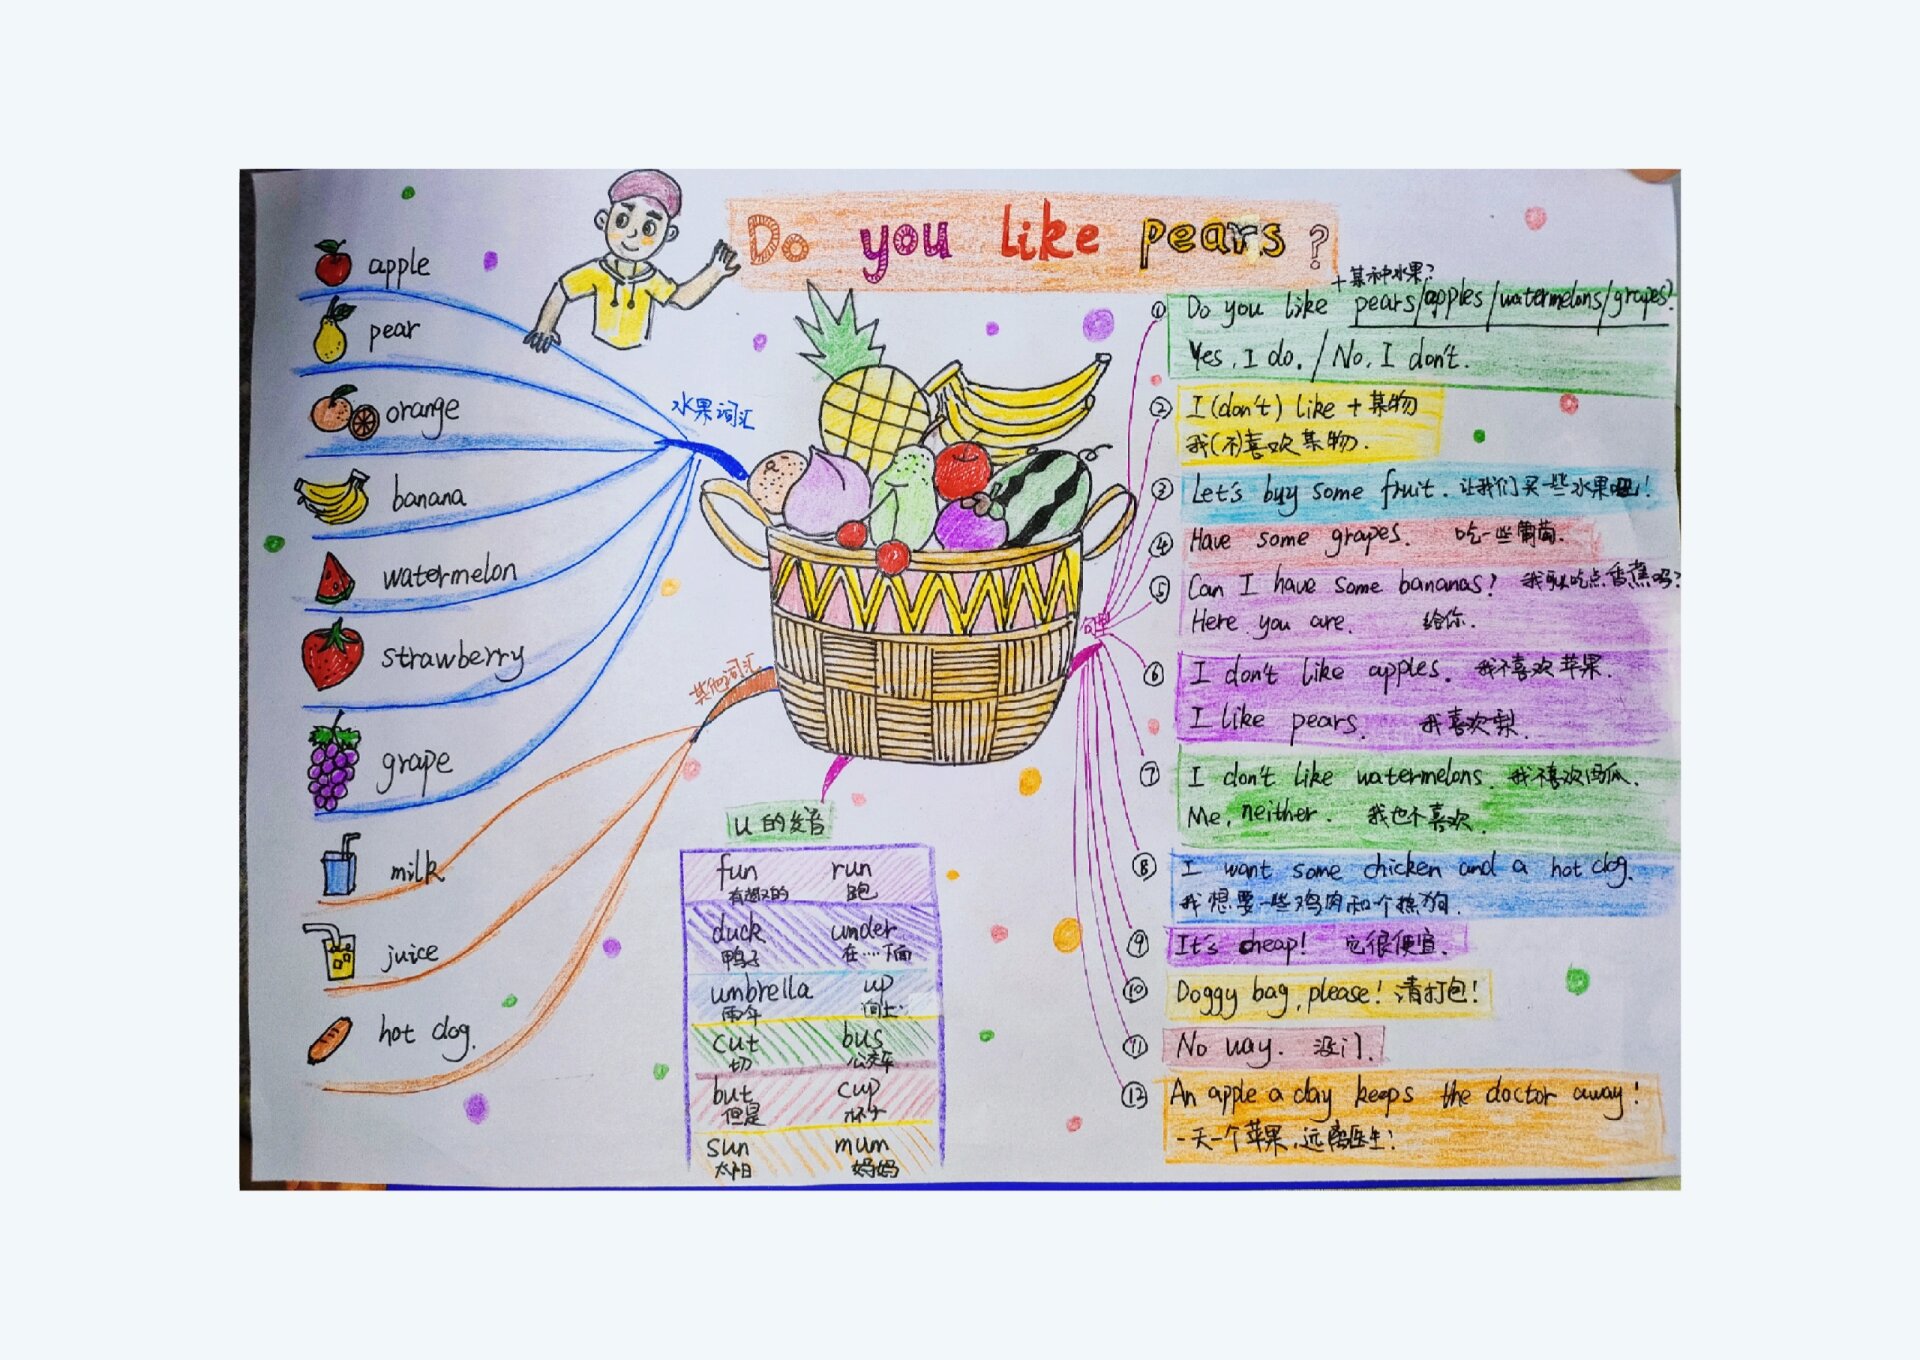 Do you like pears?
apple
pear
orange
banana
watermelon
strawberry
grape
水果词汇
milk
juice
hot dog.
其他词汇
u 的发音
fun run
有趣的 跑
duck under
鸭子 在……下面
umbrella up
雨伞 向上
cut bus
切 公交车
but cup
但是 杯子
sun mum
太阳 妈妈
句型
+某种水果?
① Do you like pears/apples/watermelons/grapes?
Yes, I do. / No, I don't.
② I (don't) like + 某物
我(不)喜欢某物.
③ Let's buy some fruit. 让我们买一些水果吧!
④ Have some grapes. 吃一些葡萄.
⑤ Can I have some bananas? 我可以吃点香蕉吗?
Here you are. 给你.
⑥ I don't like apples. 我不喜欢苹果.
I like pears. 我喜欢梨.
⑦ I don't like watermelons. 我不喜欢西瓜.
Me, neither. 我也不喜欢.
⑧ I want some chicken and a hot dog.
我想要一些鸡肉和个热狗.
⑨ It's cheap! 它很便宜.
⑩ Doggy bag, please! 请打包!
⑪ No way. 没门.
⑫ An apple a day keeps the doctor away!
一天一个苹果,远离医生!